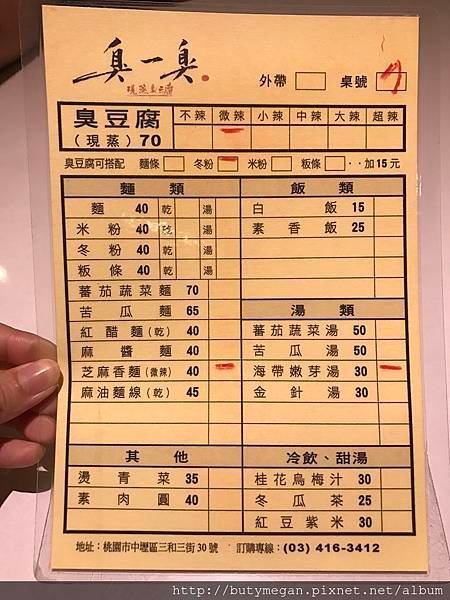 臭一臭
現蒸臭豆腐
外帶 桌號
臭豆腐
(現蒸) 70
不辣 微辣 小辣 中辣 大辣 超辣
臭豆腐可搭配 麵條 冬粉 米粉 粄條 ‧‧加15元
麵類
麵 40 乾 湯
米粉 40 乾 湯
冬粉 40 乾 湯
粄條 40 乾 湯
蕃茄蔬菜麵 70
苦瓜麵 65
紅醋麵(乾) 40
麻醬麵 40
芝麻香麵(微辣) 40
麻油麵線(乾) 45
飯類
白飯 15
素香飯 25
湯類
蕃茄蔬菜湯 50
苦瓜湯 50
海帶嫩芽湯 30
金針湯 30
其他
燙青菜 35
素肉圓 40
冷飲、甜湯
桂花烏梅汁 30
冬瓜茶 25
紅豆紫米 30
地址:桃園市中壢區三和三街30號 訂購專線:(03) 416-3412
http://butymegan.pixnet.net/album